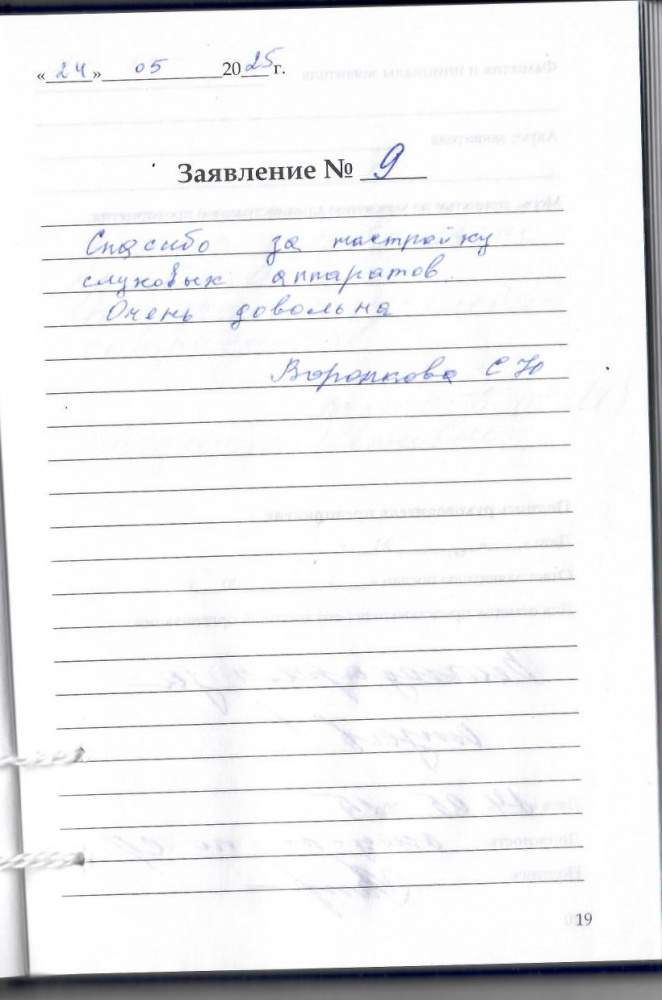 «24» 05 2025 г.
Заявление № 9
Спасибо за настройку
слуховых аппаратов.
Очень довольна
Воронкова С Ю
19